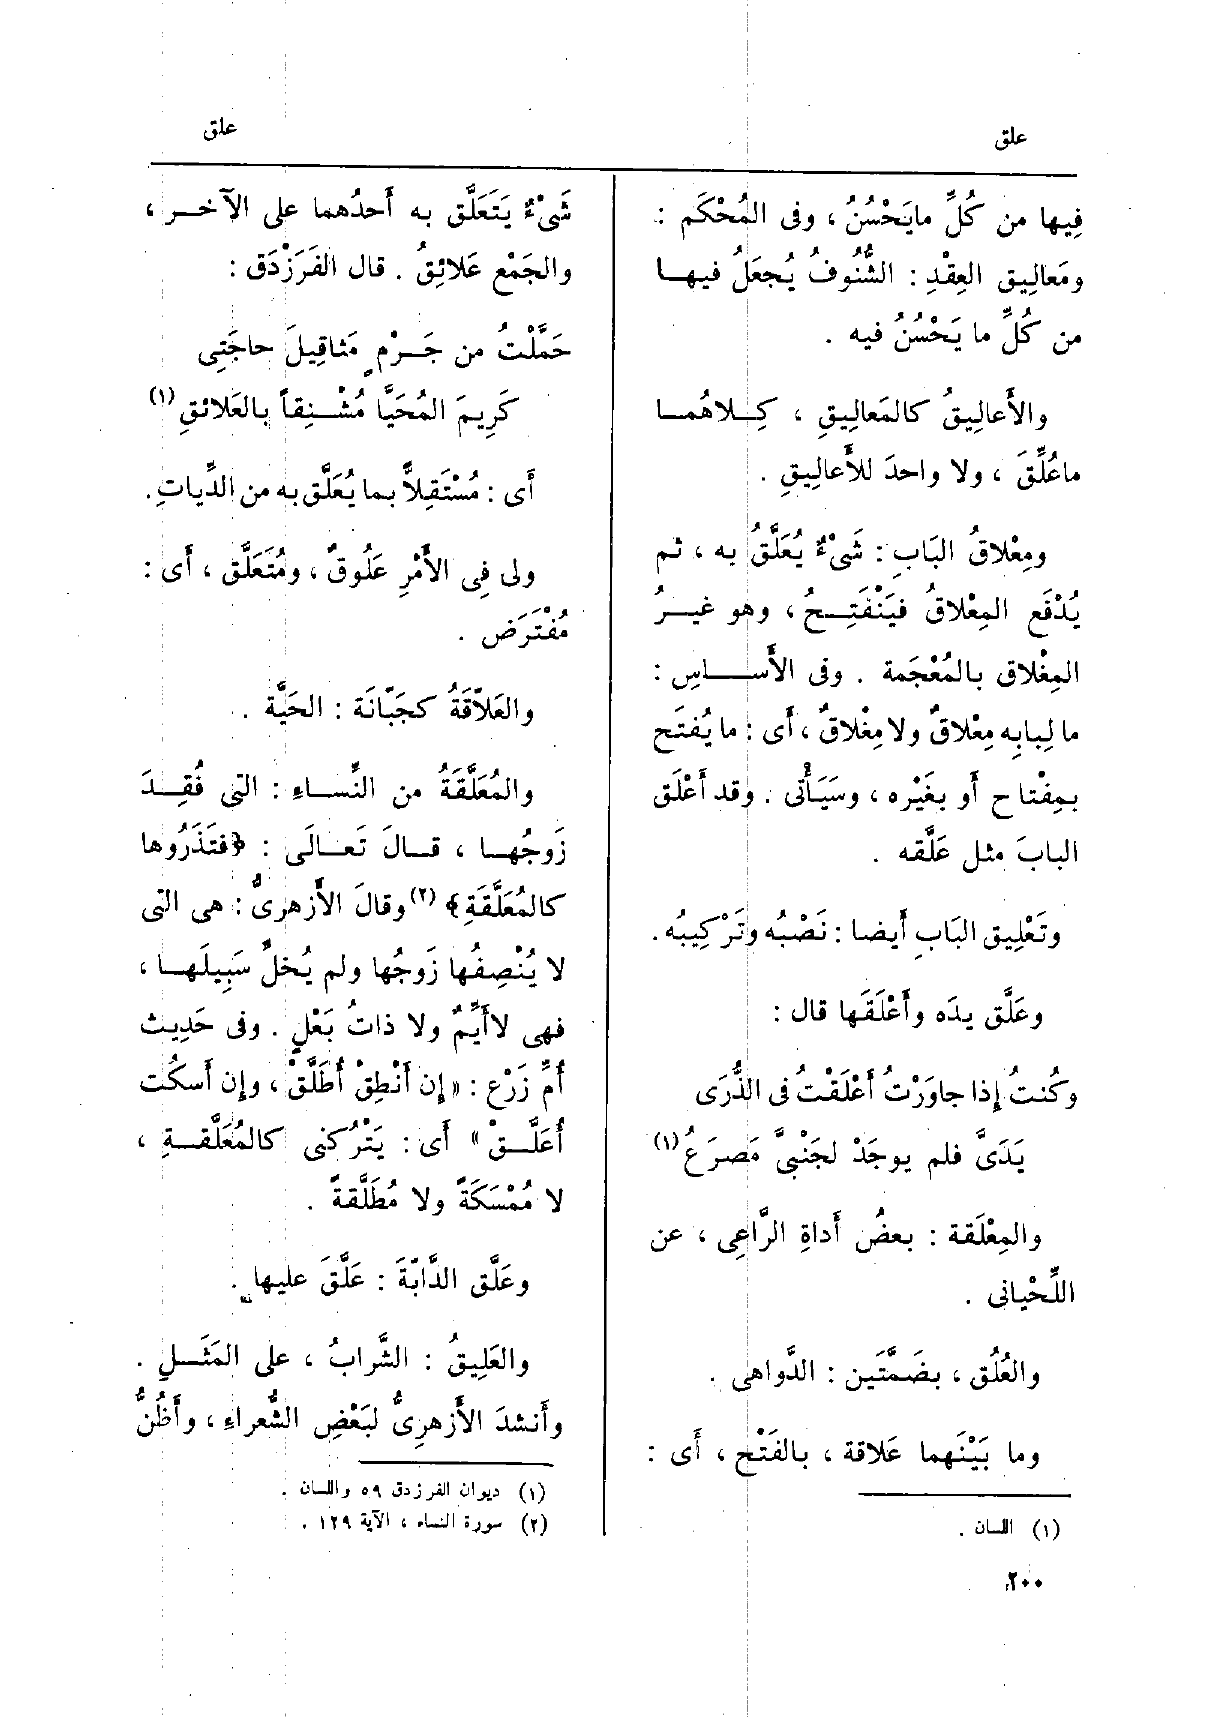 علق
علق
فِيها من كُلِّ مايَحْسُنُ ، وفى المُحْكَم :
ومَعالِيق العِقْدِ : الشُّنُوفُ يُجعَلُ فيهـا
من كُلِّ ما يَحْسُنُ فيه .
والأَعالِيقُ كالمَعالِيقِ ، كِـلاهُمـا
ماعُلِّقَ ، ولا واحدَ للأَعالِيقِ .
ومِعْلاقُ البَابِ : شَىْءٌ يُعَلَّقُ به ، ثم
يُدْفَع المِعْلاقُ فيَنْفَتِـحُ ، وهو غيـرُ
المِغْلاق بالمُعْجَمة . وفى الأَسـاسِ :
ما لِبابِه مِعْلاقٌ ولا مِغْلاقٌ ، أَى : ما يُفتَح
بمِفْتاح أَو بغَيْره ، وسَيَأْتى . وقد أَعْلَق
البابَ مثل عَلَّقه .
وتَعْلِيق البَابِ أَيضا : نَصْبُه وتَرْكِيبُه .
وعَلَّق يدَه وأَعْلَقَها قال :
وكُنتُ إِذا جاوَرْتُ أَعْلَقْتُ فى الذُّرَى
يَدَىَّ فلم يوجَدْ لجَنْبىَّ مَصرَعُ (١)
والمِعْلَقة : بعضُ أَداةِ الرَّاعِى ، عن
اللِّحْيانى .
والعُلُق ، بضَمَّتَين : الدَّواهى .
وما بَيْنَهما عَلاقة ، بالفَتْح ، أَى :
(١) اللسان .
٢٠٠
شَىْءٌ يَتَعَلَّق به أَحدُهما على الآخـر ،
والجَمْع عَلائِقُ . قال الفَرَزْدَق :
حَمَّلْتُ من جَـرْمٍ مَثاقِيلَ حاجَتِى
كَرِيمَ المُحَيَّا مُشْـنِقاً بالعَلائقِ (١)
أَى : مُسْتَقِلاًّ بما يُعَلَّق به من الدِّياتِ .
ولى فِى الأَمْرِ عَلُوقٌ ، ومُتَعَلَّق ، أَى :
مُفْتَرَض .
والعَلاَّقَةُ كجَبّانَة : الحَيَّة .
والمُعَلَّقَةُ من النِّسـاءِ : التى فُقِـدَ
زَوجُهـا ، قـالَ تَعـالَى : ﴿فتَذَرُوها
كالمُعَلَّقَةِ﴾ (٢) وقالَ الأَزهرىُّ : هى التى
لا يُنْصِفُها زَوجُها ولم يُخلِّ سَبِيلَهـا ،
فهى لاأَيِّمٌ ولا ذاتُ بَعْلٍ . وفى حَدِيث
أُمِّ زَرْع : « إِن أَنْطِقْ أُطَلَّقْ ، وإِن أَسكُت
أُعَلَّـقْ » أَى : يَتْرُكنى كالمُعَلَّقـةِ ،
لا مُمْسَكَةً ولا مُطَلَّقةً .
وعَلَّق الدَّابّةَ : عَلَّقَ عليها .
والعَلِيقُ : الشَّرابُ ، على المَثَـلِ .
وأَنشدَ الأَزهرِىُّ لبَعْضِ الشُّعراءِ ، وأَظُنُّ
(١) ديوان الفرزدق ٥٩ واللسان .
(٢) سورة النساء ، الآية ١٢٩ .